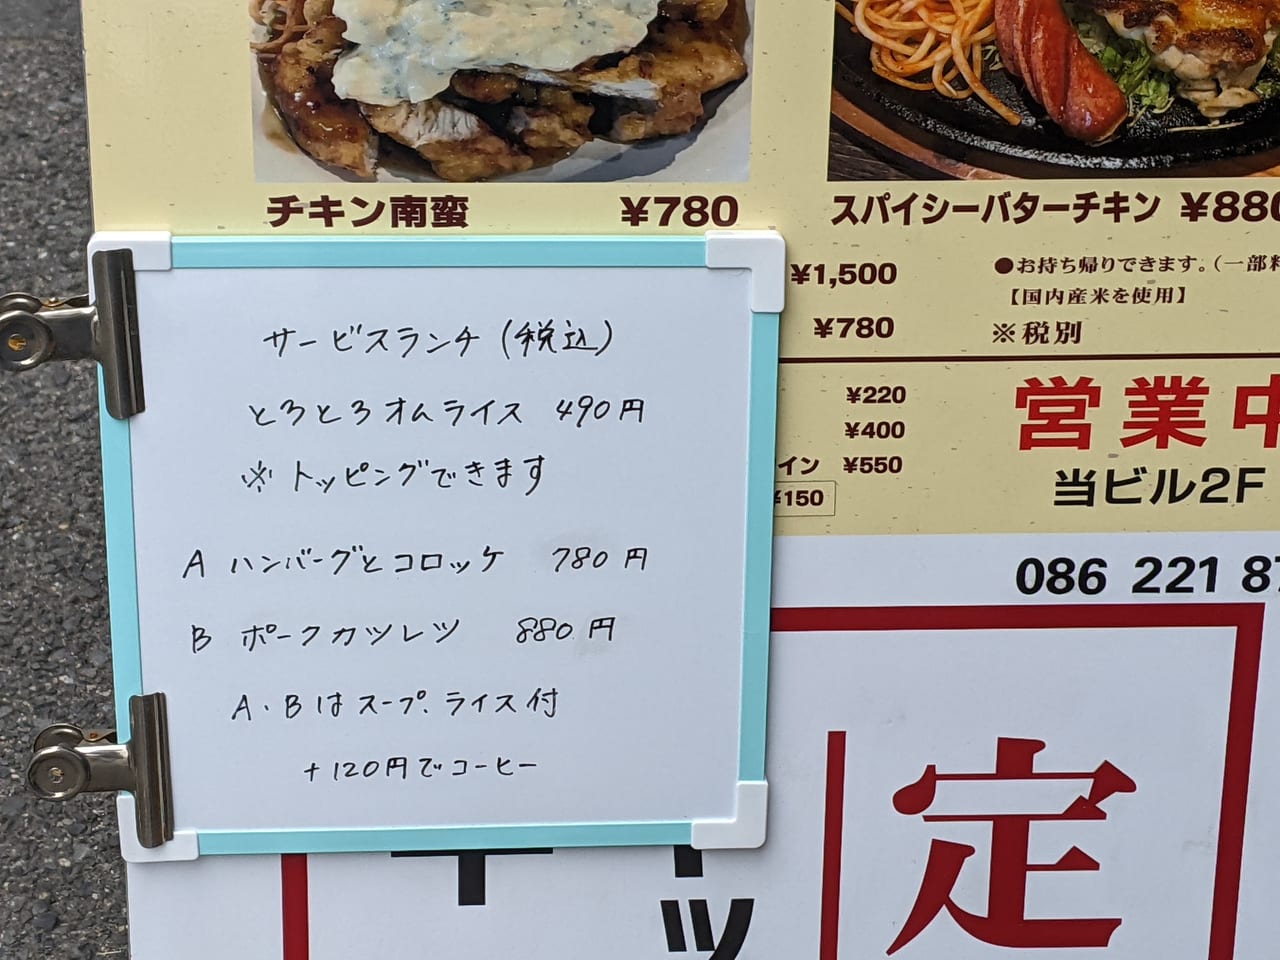 チキン南蛮 ¥780
スパイシーバターチキン ¥880
¥1,500
●お持ち帰りできます。(一部料
【国内産米を使用】
¥780
※税別
¥220
¥400
イン ¥550
¥150
営業中
当ビル2F
086 221 87
サービスランチ(税込)
とろとろオムライス 490円
※トッピングできます
A ハンバーグとコロッケ 780円
B ポークカツレツ 880円
A・Bはスープ、ライス付
+120円でコーヒー
ッ
定